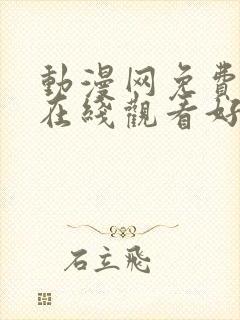 動漫网免費
在綫觀看好
石立飛